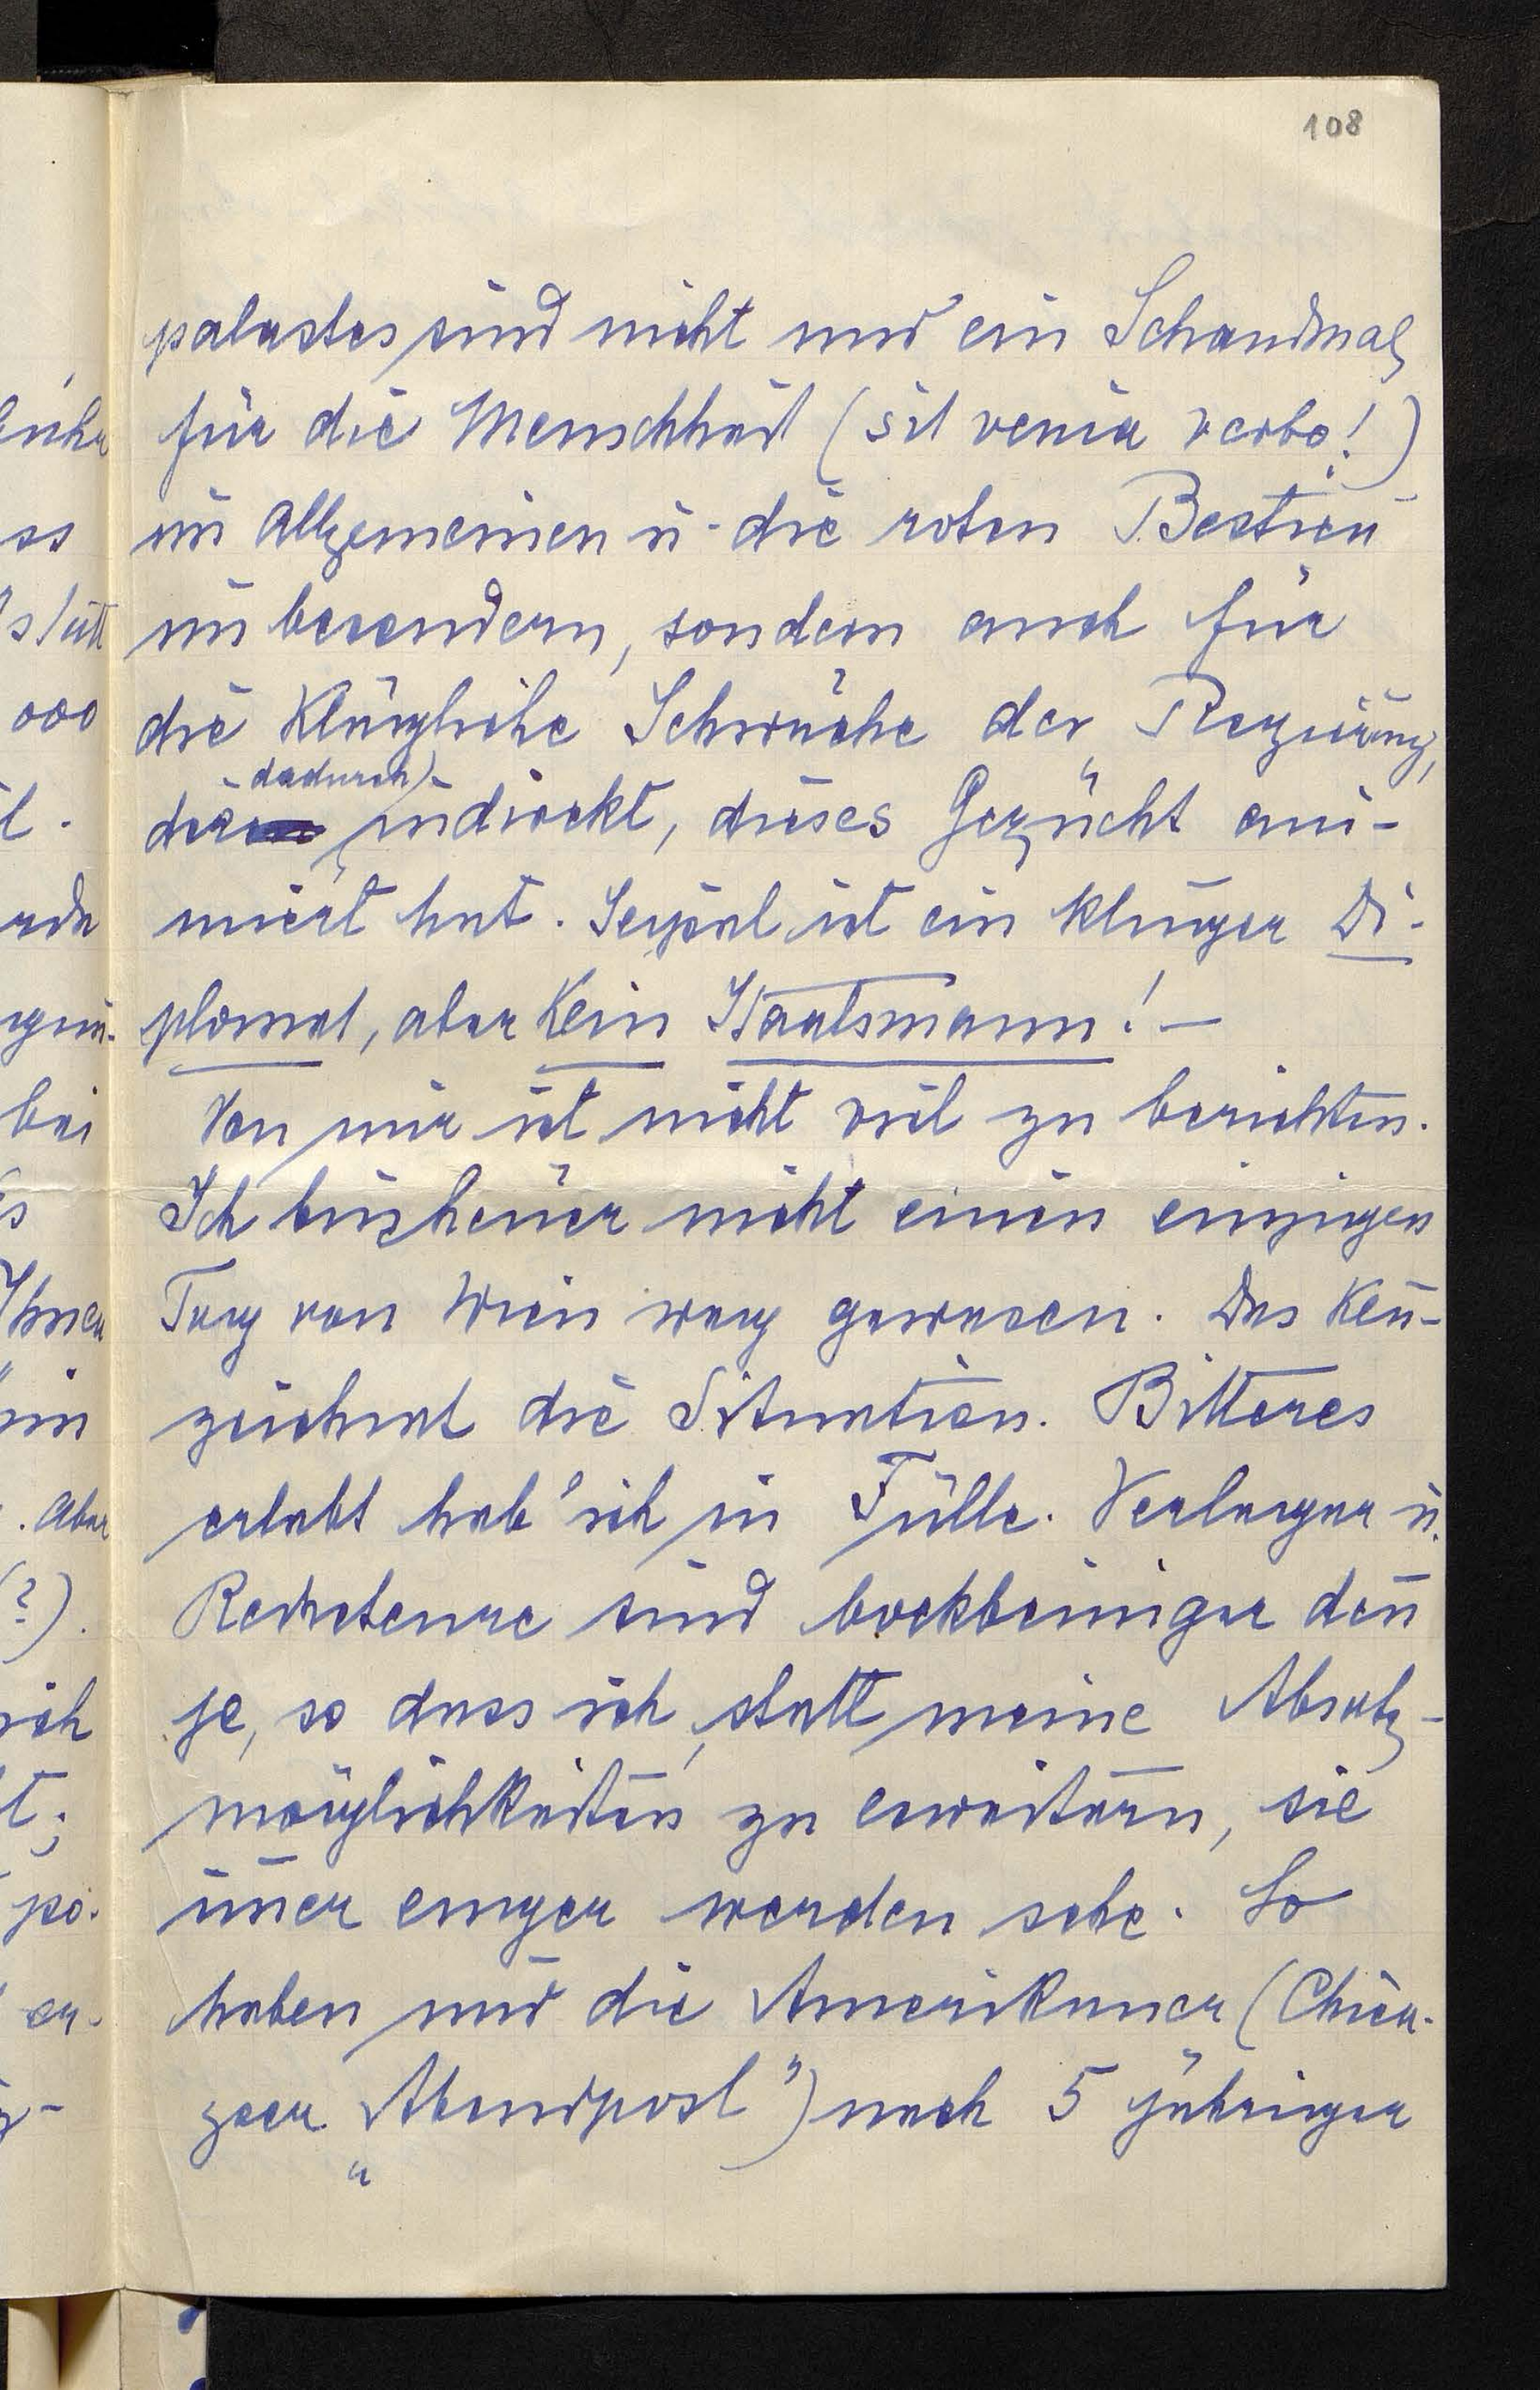 108
palastes sind nicht nur ein Schandmal
für die Menschheit (sit venia verbo!)
im Allgemeinen u. die roten Bestien
im besondern, sondern auch für
die klägliche Schwäche der Regierung,
dadurch
die indirekt, dieses Gezücht ani-
miert hat. Seipel ist ein kluger Di-
plomat, aber kein Staatsmann! —
Von mir ist nicht viel zu berichten.
Ich bin heuer nicht einen einzigen
Tag von Wien weg gewesen. Das ken̄-
zeichnet die Situation. Bitteres
erlebt hab' ich in Fülle. Verleger u.
Redacteure sind bockbeiniger den̄
je, so dass ich, statt meine Absatz-
möglichkeiten zu erweitern, sie
im̄er enger werden sehe. So
haben mir die Amerikaner (Chica-
goer „Abendpost") nach 5 jähriger